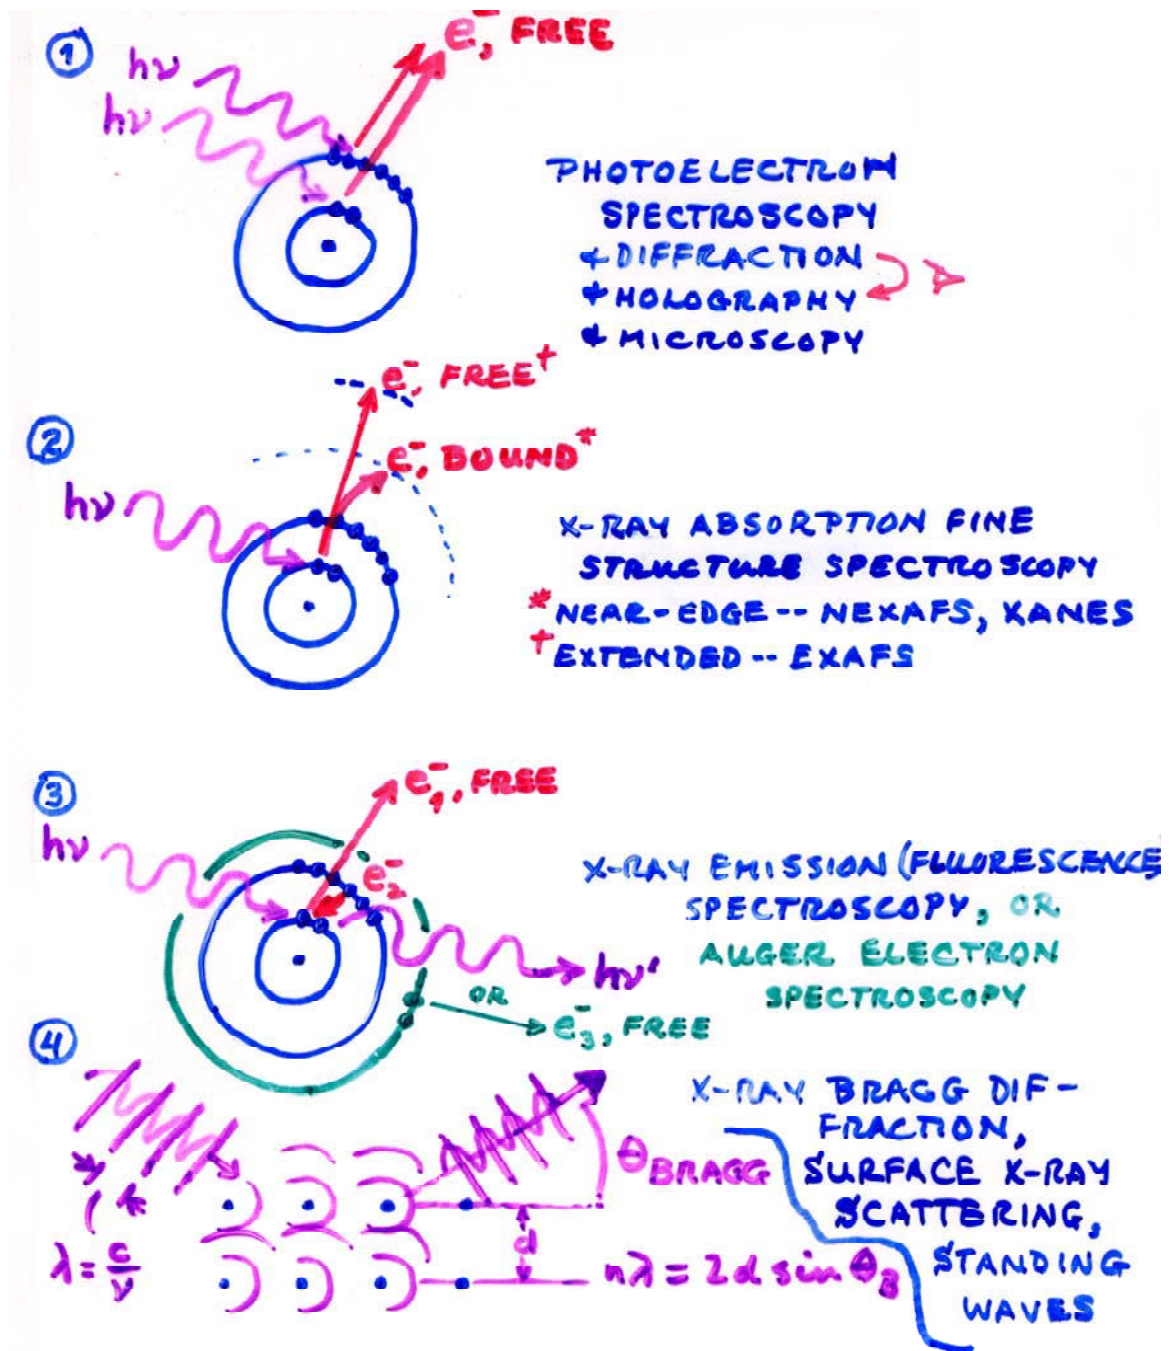 ①
e⁻, FREE
hν
hν
PHOTOELECTRON
SPECTROSCOPY
& DIFFRACTION
+ HOLOGRAPHY
& MICROSCOPY
②
e⁻, FREE†
e⁻, BOUND*
hν
X-RAY ABSORPTION FINE
STRUCTURE SPECTROSCOPY
* NEAR-EDGE -- NEXAFS, XANES
† EXTENDED -- EXAFS
③
e₁⁻, FREE
hν
e₂⁻
X-RAY EMISSION (FLUORESCENCE)
SPECTROSCOPY, OR
AUGER ELECTRON
SPECTROSCOPY
hν'
OR
e₃⁻, FREE
④
X-RAY BRAGG DIF-
FRACTION,
SURFACE X-RAY
SCATTERING,
STANDING
WAVES
θ BRAGG
d
λ = c/ν
nλ = 2d sin θ_B